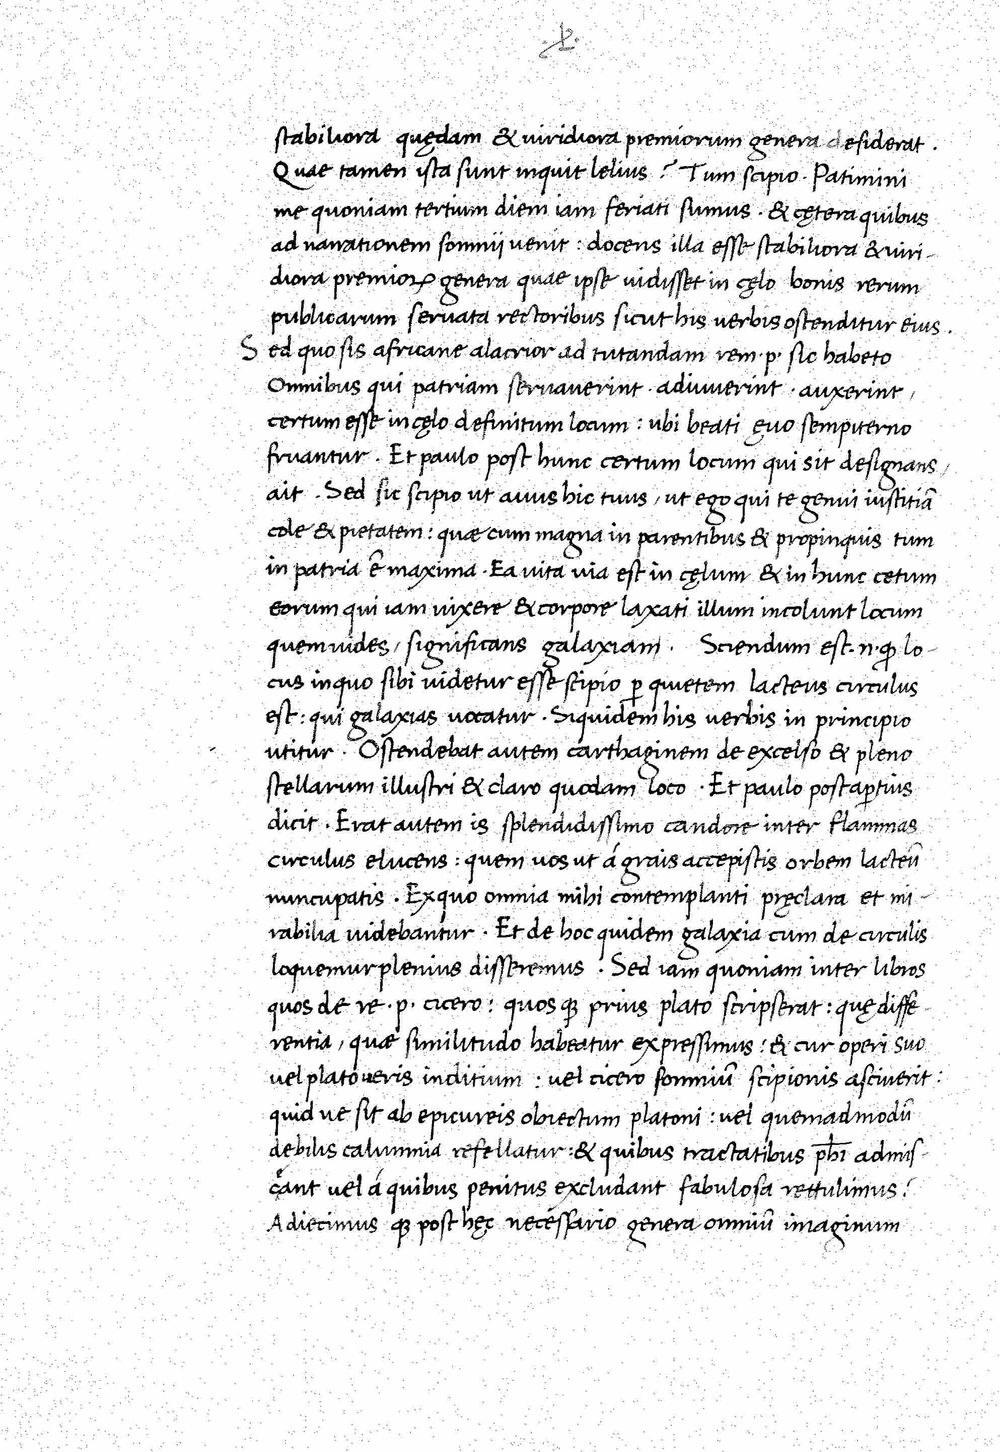 stabiliora quędam & uiridiora premiorum genera desiderat .
Quae tamen ista sunt inquit lelius ? Tum scipio . Patimini
me quoniam tertium diem iam feriati sumus . & cętera quibus
ad narrationem somnij uenit : docens illa esse stabiliora & uiri-
diora premioꝝ genera quae ipse uidisset in cęlo bonis rerum
publicarum seruata rectoribus sicut his uerbis ostenditur eius .
Sed quo sis africane alacrior ad tutandam rem . p . sic habeto
Omnibus qui patriam seruauerint . adiuuerint . auxerint ,
certum esse in cęlo definitum locum : ubi beati ęuo sempiterno
fruantur . Et paulo post hunc certum locum qui sit designans ,
ait . Sed sic scipio ut auus hic tuus , ut ego qui te genui iustitiā
cole & pietatem : quæ cum magna in parentibus & propinquis tum
in patria ē maxima . Ea uita uia est in cęlum & in hunc cetum
eorum qui iam uixere & corpore laxati illum incolunt locum
quem uides , significans galaxiam . Sciendum est . n . ꝙ lo-
cus in quo sibi uidetur esse scipio ꝑ quietem lacteus circulus
est : qui galaxias uocatur . Siquidem his uerbis in principio
utitur . Ostendebat autem carthaginem de excelso & pleno
stellarum illustri & claro quodam loco . Et paulo post aꝑtius
dicit . Erat autem is splendidissimo candore inter flammas
circulus elucens : quem uos ut á grais accepistis orbem lacteū
nuncupatis . Ex quo omnia mihi contemplanti pręclara et mi-
rabilia uidebantur . Et de hoc quidem galaxia cum de circulis
loquemur plenius disseremus . Sed iam quoniam inter libros
quos de re . p . cicero : quosꝙ prius plato scripserat : quę diffe-
rentia , quæ similitudo habeatur expressimus : & cur operi suo
uel plato ueris inditium : uel cicero somniū scipionis asciuerit :
quid ue sit ab epicureis obiectum platoni : uel quemadmodū
debilis calumnia refellatur : & quibus tractatibus phī admis-
ceant uel á quibus penitus excludant fabulosa rettulimus :
Adiecimus ꝙ post hęc necessario genera omniū imaginum